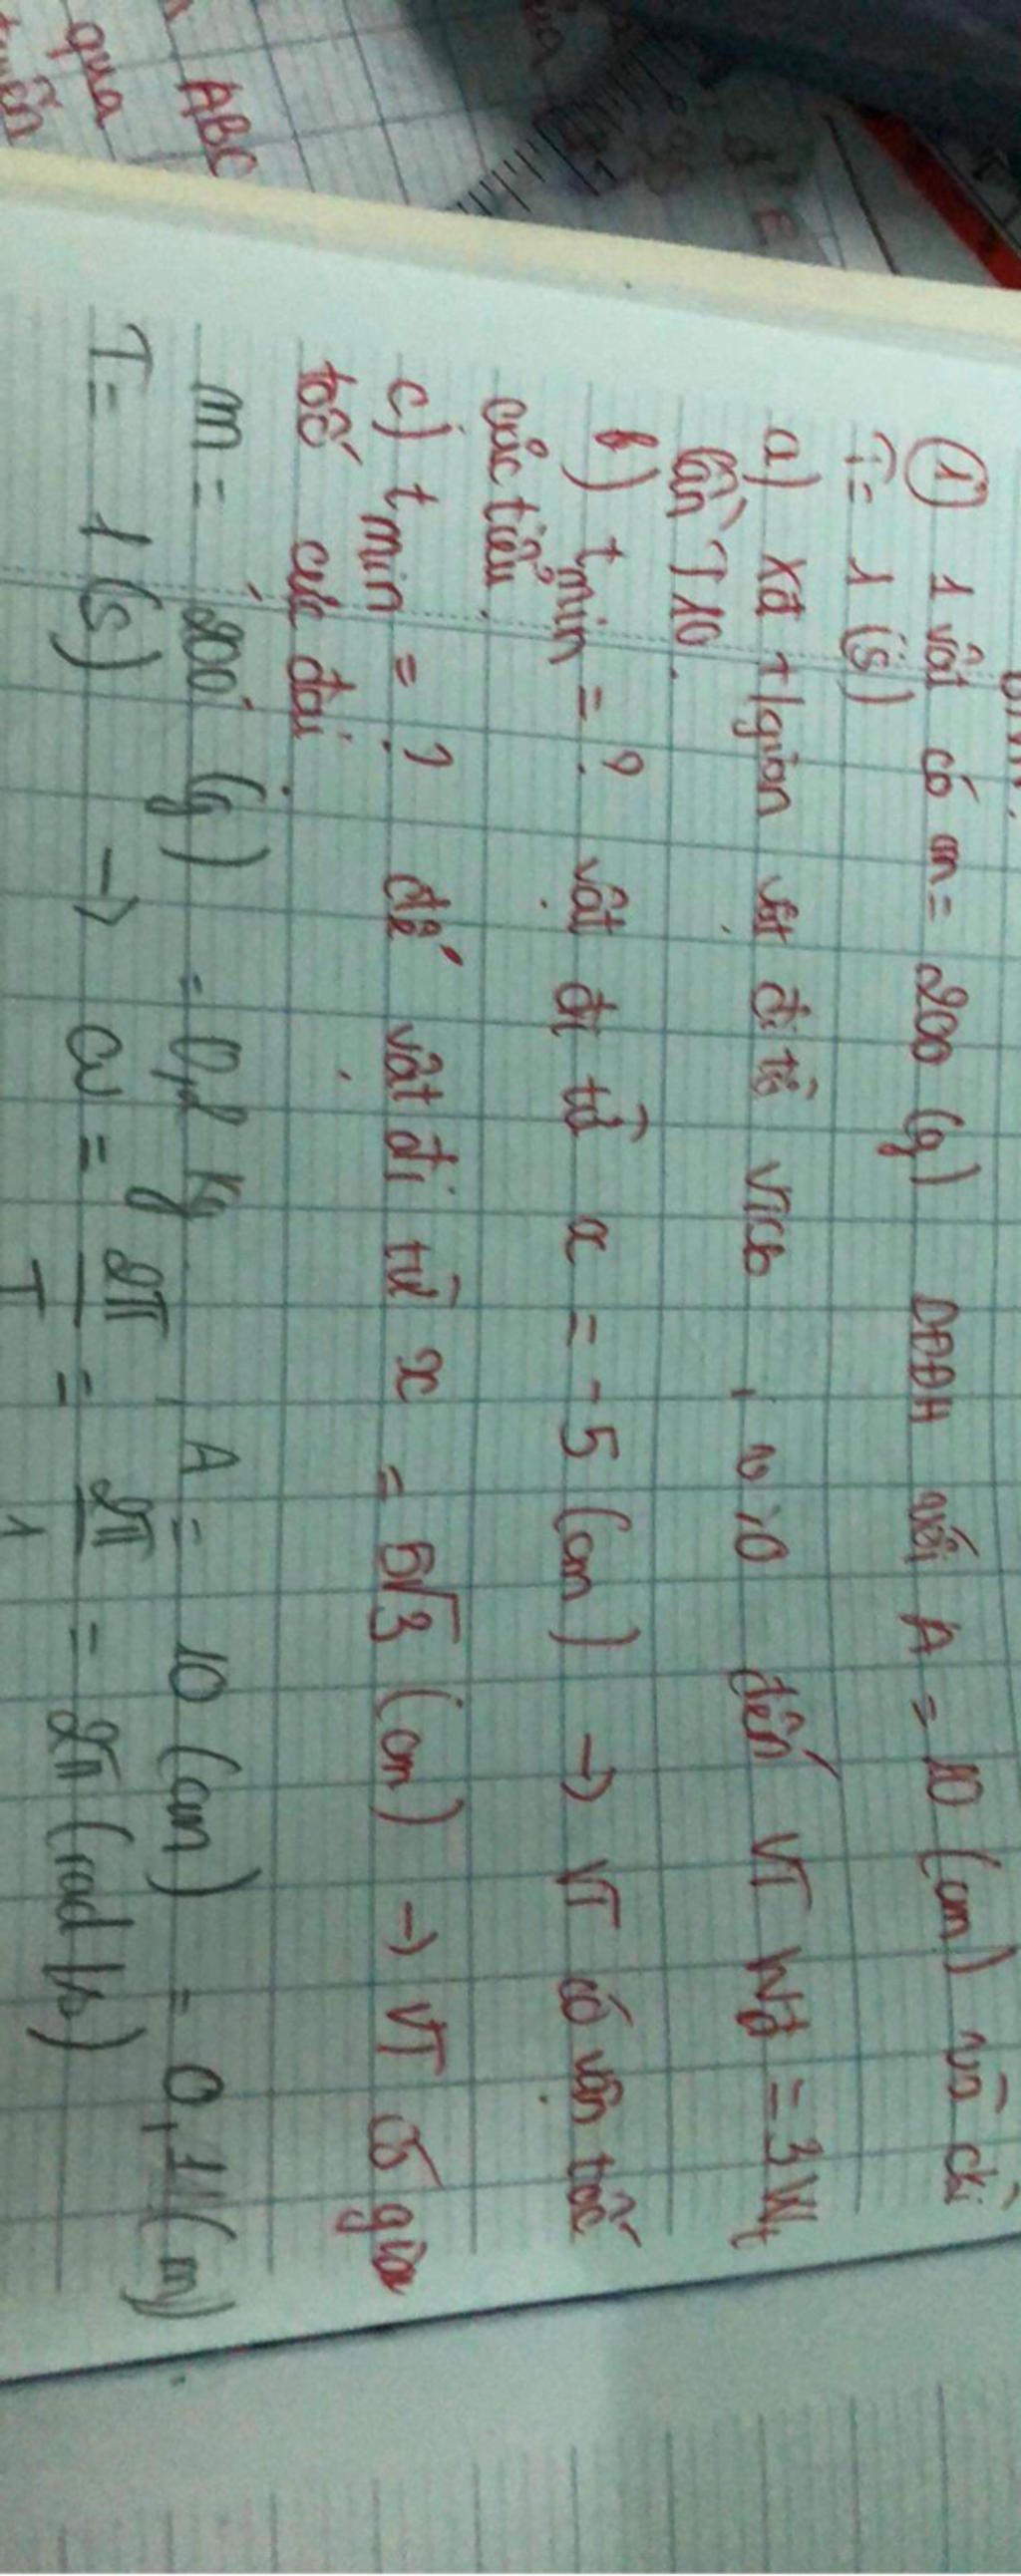 ① 1 vật có m = 200 (g) DĐĐH với A = 10 (cm) và chi
T = 1 (s)
a) Xđ t/gian vật đi từ VTCB , v > 0 đến VT Wđ = 3Wt
lần T10.
b) t min = ? vật đi từ x = -5 (cm) → VT có vận tốc
cực tiểu.
c) t min = ? để vật đi từ x = 5√3 (cm) → VT có gia
tốc cực đại
m = 200 (g) = 0,2 kg , A = 10 (cm) = 0,1 (m)
T = 1 (s) → ω = 2π/T = 2π/1 = 2π (rad/s)
ABC
qua